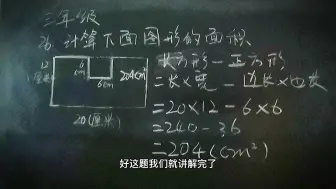 三年级
26.计算下面图形的面积
12
(厘米)
6
cm
6cm
204cm²
20(厘米)
长方形-正方形
=长×宽-边长×边长
=20×12-6×6
=240-36
=204(cm²)
好这题我们就讲解完了